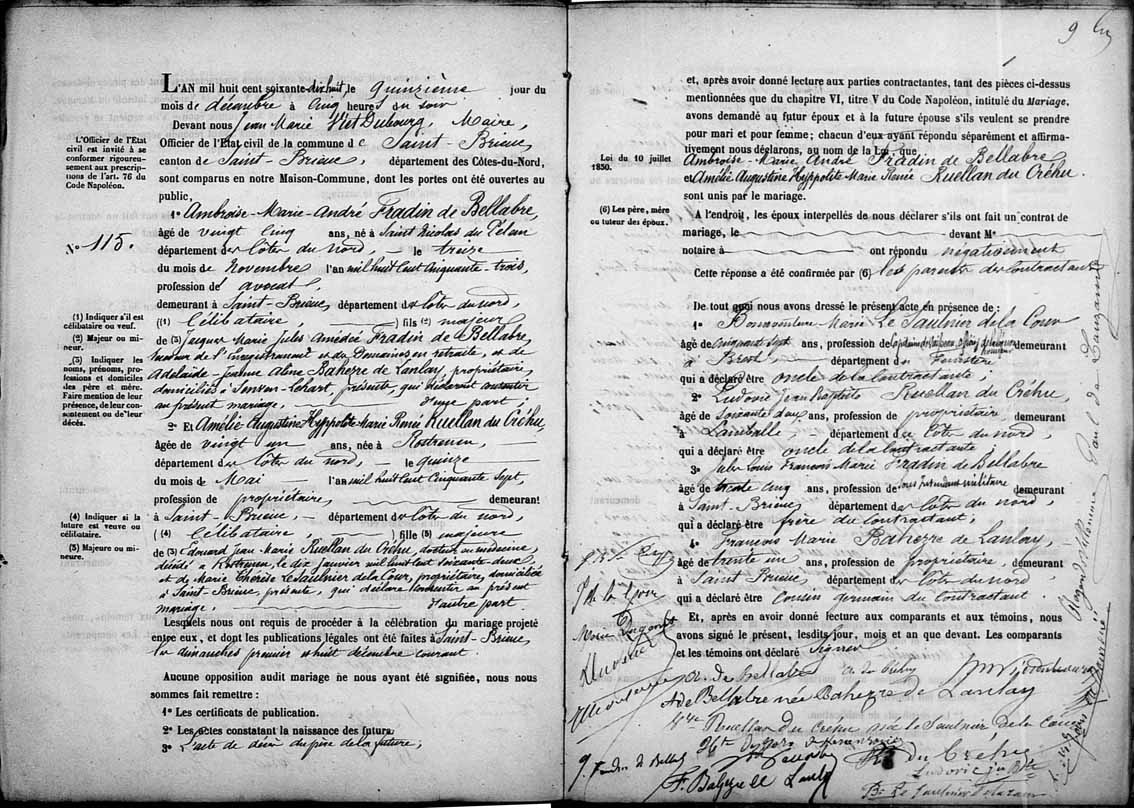 L'AN mil huit cent soixante-dix huit, le quinzième jour du
mois de décembre à cinq heures du soir
Devant nous Jean Marie Viet Dubourg, Maire,
Officier de l'Etat civil de la commune de Saint-Brieuc
canton de Saint-Brieuc, département des Côtes-du-Nord,
sont comparus en notre Maison-Commune, dont les portes ont été ouvertes au
public,
1º Ambroise-Marie-André Fradin de Bellabre,
âgé de vingt cinq ans, né à Saint Nicolas du Pelem
département des Côtes du nord, le treize
du mois de Novembre l'an mil huit cent cinquante-trois,
profession de avocat,
demeurant à Saint-Brieuc, département des Côtes du nord,
((1) Célibataire, ) fils (2) majeur
de (3) Jacques Marie Jules Amédée Fradin de Bellabre,
de l'Enregistrement et des Domaines en retraite, et de
Adélaïde-Jeanne Aline Baherre de Lanlay, propriétaire,
domiciliés à Senven-Léhart, présents, qui déclarent consentir
au présent mariage, d'une part ;
2º Et Amélie Augustine Hyppolite Marie Renée Ruellan du Créhu,
âgée de vingt un ans, née à Rostrenen,
département des Côtes du nord, le quinze
du mois de Mai l'an mil huit cent cinquante sept,
profession de propriétaire, demeurant
à Saint-Brieuc, département des Côtes du nord
((4) Célibataire, ) fille (5) majeure
de (3) Edouard Jean Marie Ruellan du Créhu, docteur en médecine,
décédé à Rostrenen, le dix janvier mil huit cent soixante deux,
et de Marie Thérèse Le Saulnier de la Cour, propriétaire, domiciliée
à Saint Brieuc, présente, qui déclare consentir au présent
mariage, d'autre part
Lesquels nous ont requis de procéder à la célébration du mariage projeté
entre eux, et dont les publications légales ont été faites à Saint-Brieuc,
les dimanches premier et huit décembre courant.
Aucune opposition audit mariage ne nous ayant été signifiée, nous nous
sommes fait remettre :
1º Les certificats de publication.
2º Les actes constatant la naissance des futurs
3º L'acte de décès du père de la future ;
L'Officier de l'Etat
civil est invité à se
conformer rigoureu-
sement aux prescrip-
tions de l'art. 76 du
Code Napoléon.
Nº 115.
(1) Indiquer s'il est
célibataire ou veuf.
(2) Majeur ou mi-
neur.
(3) Indiquer les
noms, prénoms, pro-
fessions et domiciles
les père et mère.
Faire mention de leur
présence, de leur con-
sentement ou de leur
décés.
(4) Indiquer si la
future est veuve ou
célibataire.
(5) Majeure ou mi-
neure.
9
et, après avoir donné lecture aux parties contractantes, tant des pièces ci-dessus
mentionnées que du chapitre VI, titre V du Code Napoléon, intitulé du Mariage,
avons demandé au futur époux et à la future épouse s'ils veulent se prendre
pour mari et pour femme ; chacun d'eux ayant répondu séparément et affirma-
tivement nous déclarons, au nom de la Loi, que
Ambroise-Marie André Fradin de Bellabre
et Amélie Augustine Hyppolite Marie Renée Ruellan du Créhu.
sont unis par le mariage.
A l'endroit, les époux interpellés de nous déclarer s'ils ont fait un contrat de
mariage, le devant Me
notaire à ont répondu négativement
Cette réponse a été confirmée par (6) les parents des contractants
De tout quoi nous avons dressé le présent acte en présence de :
1º Bonaventure Marie Le Saulnier de la Cour
âgé de cinquante sept ans, profession de demeurant
à Brest, département du Finistère
qui a déclaré être oncle de la contractante ;
2º Ludovic Jean Baptiste Ruellan du Créhu,
âgé de soixante deux ans, profession de propriétaire demeurant
à Lamballe, département des Côtes du nord,
qui a déclaré être oncle de la contractante
3º Jules Louis François Marie Fradin de Bellabre
âgé de trente cinq ans, profession de sous intendant militaire demeurant
à Saint-Brieuc, département des Côtes du nord,
qui a déclaré être frère du contractant,
4º François Marie Baherre de Lanlay,
âgé de trente un ans, profession de propriétaire, demeurant
à Saint Brieuc, département des Côtes du nord,
qui a déclaré être cousin germain du contractant
Et, après en avoir donné lecture aux comparants et aux témoins, nous
avons signé le présent, lesdits jour, mois et an que devant. Les comparants
et les témoins ont déclaré signer
Loi du 10 juillet
1850.
(6) Les père, mère
ou tuteur des époux.
A. de Bellabre A. du Créhu
A de Bellabre née Baherre de Lanlay
Ruellan du Créhu née Le Saulnier de la Cour
F. Baherre de Lanlay
du Créhu
Ludovic Jn Bte
Bre Le Saulnier de la Cour